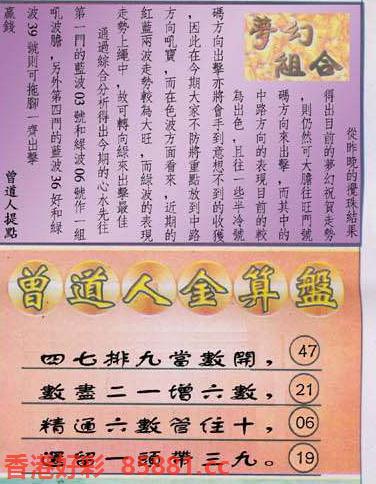 夢幻
組合
從昨晚的攪珠結果
得出目前的夢幻祝賀走勢
，則仍然可大膽往旺門號
碼方向來出擊，而其中的
中路方向的表現目前的較
為出色，且往一些半冷號
碼方向出擊亦將會手到意想不到的收獲
，因此在今期大家不防將重點放到中路
方向吼寶，而在色波方面看來，近期的
紅藍兩波走勢較為大旺，而綠波的表現
走勢上繩中，故可轉向綠來出擊最佳
通過綜合分析得出今期的心水先往
第一門的藍波03號和綠波06號作一組
吼波膽，另外第四門的藍波26好和綠
波39號則可拖腳一齊出擊
贏錢
曾道人提點
曾道人金算盤
四七排九當數開， 47
數盡二一增六數， 21
精通六數管住十， 06
還留一頭帶三九。 19
香港好彩 85881.cc